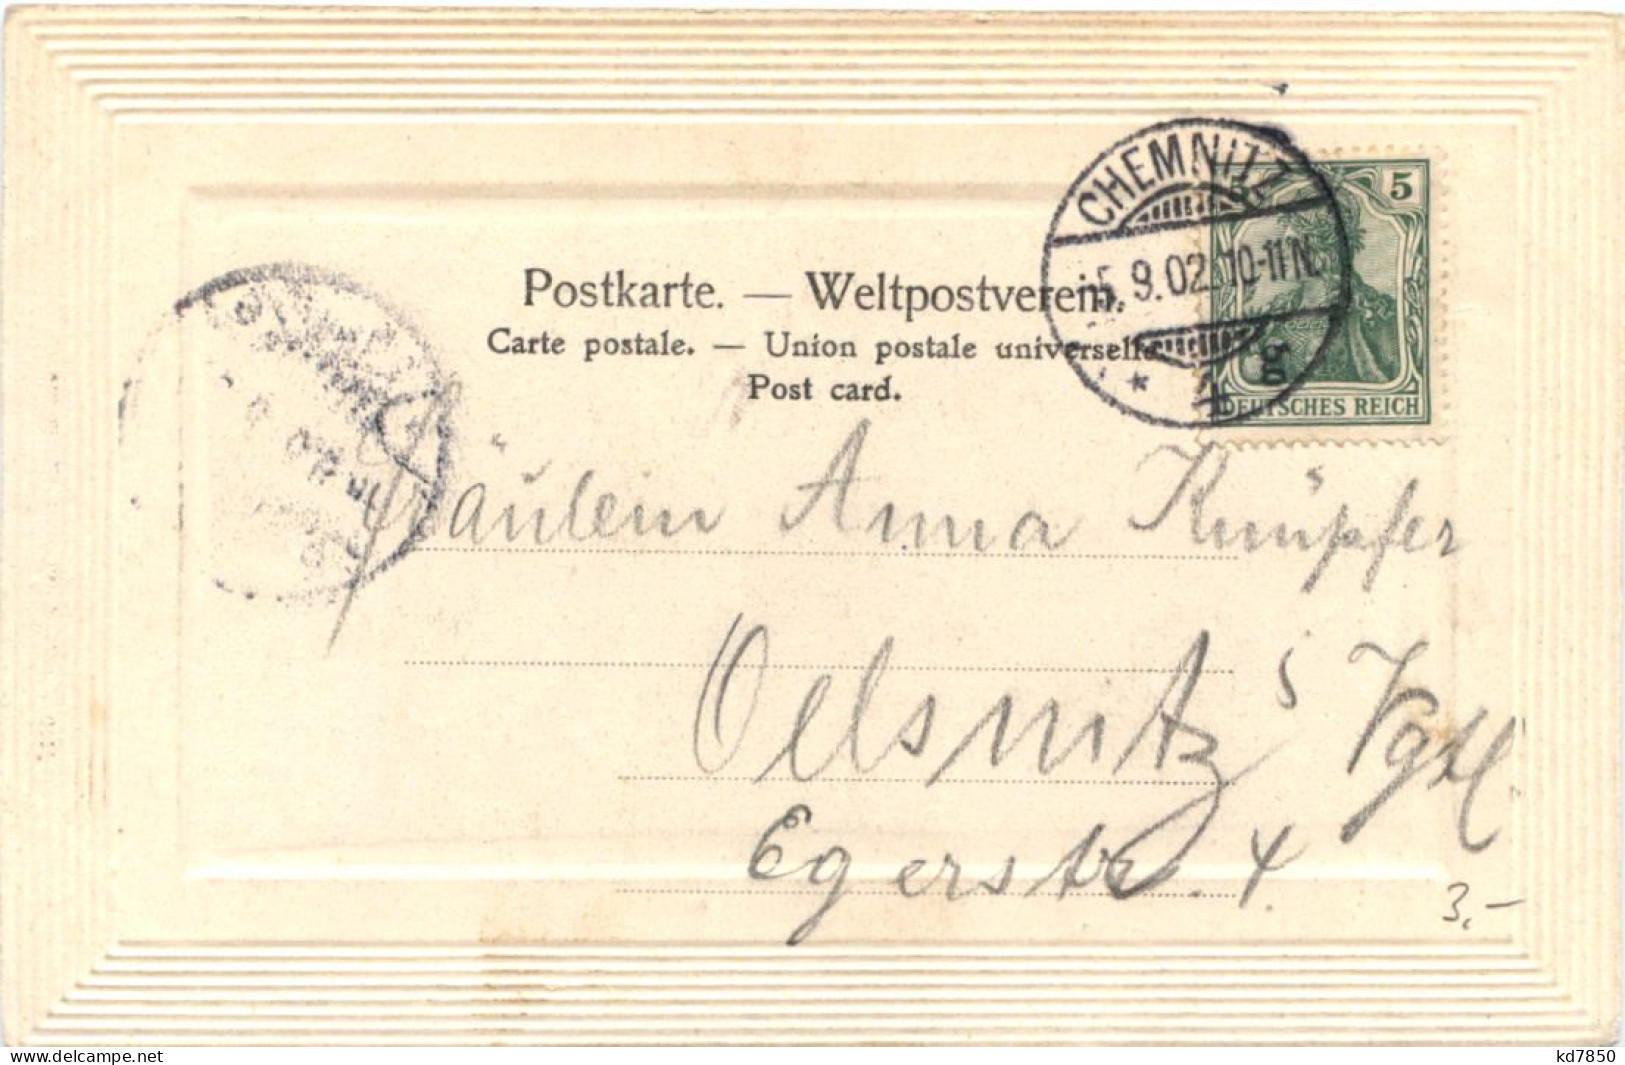 CHEMNITZ
5.9.02. 10-11 N.
* 4
5 5
DEUTSCHES REICH
Postkarte. — Weltpostverein.
Carte postale. — Union postale universelle.
Post card.
Fräulein Anna Knüpfer
Oelsnitz i Vgtl.
Egerstr. 4.
3.-
www.delcampe.net
kd7850